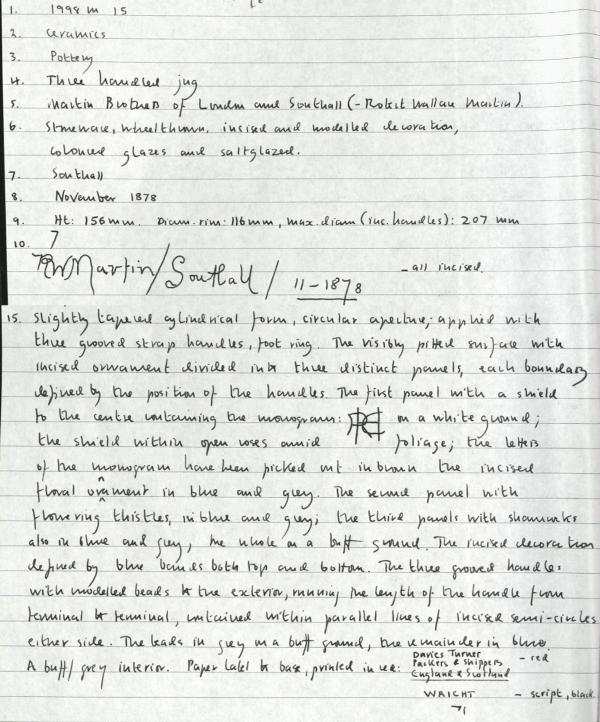 1. 1998 M 15
2. Ceramics
3. Pottery
4. Three handled jug
5. Martin Brothers of London and Southall (-Robert Wallace Martin).
6. Stoneware, wheelthrown, incised and modelled decoration,
coloured glazes and saltglazed.
7. Southall
8. November 1878
9. Ht: 156mm. Diam. rim: 116mm, max. diam (inc. handles): 207 mm
10. 7
RW Martin / Southall / 11-1878 - all incised.
15. Slightly tapered cylindrical form, circular aperture, applied with
three grooved strap handles, foot ring. The visibly pitted surface with
incised ornament divided into three distinct panels, each boundary
defined by the position of the handles. The first panel with a shield
to the centre containing the monogram: on a white ground;
the shield within open roses amid foliage; the letters
of the monogram have been picked out in brown the incised
floral ornament in blue and grey. The second panel with
flowering thistles, in blue and grey; the third panels with shamrocks
also in blue and grey, the whole on a buff ground. The incised decoration
defined by blue bands both top and bottom. The three grooved handles
with modelled beads to the exterior, running the length of the handle from
terminal to terminal, contained within parallel lines of incised semi-circles
either side. The beads in grey on a buff ground, the remainder in blue.
A buff/grey interior. Paper label to base, printed in red: Davies Turner
Packers & Shippers - red
England & Scotland
WRIGHT - script, black.
71